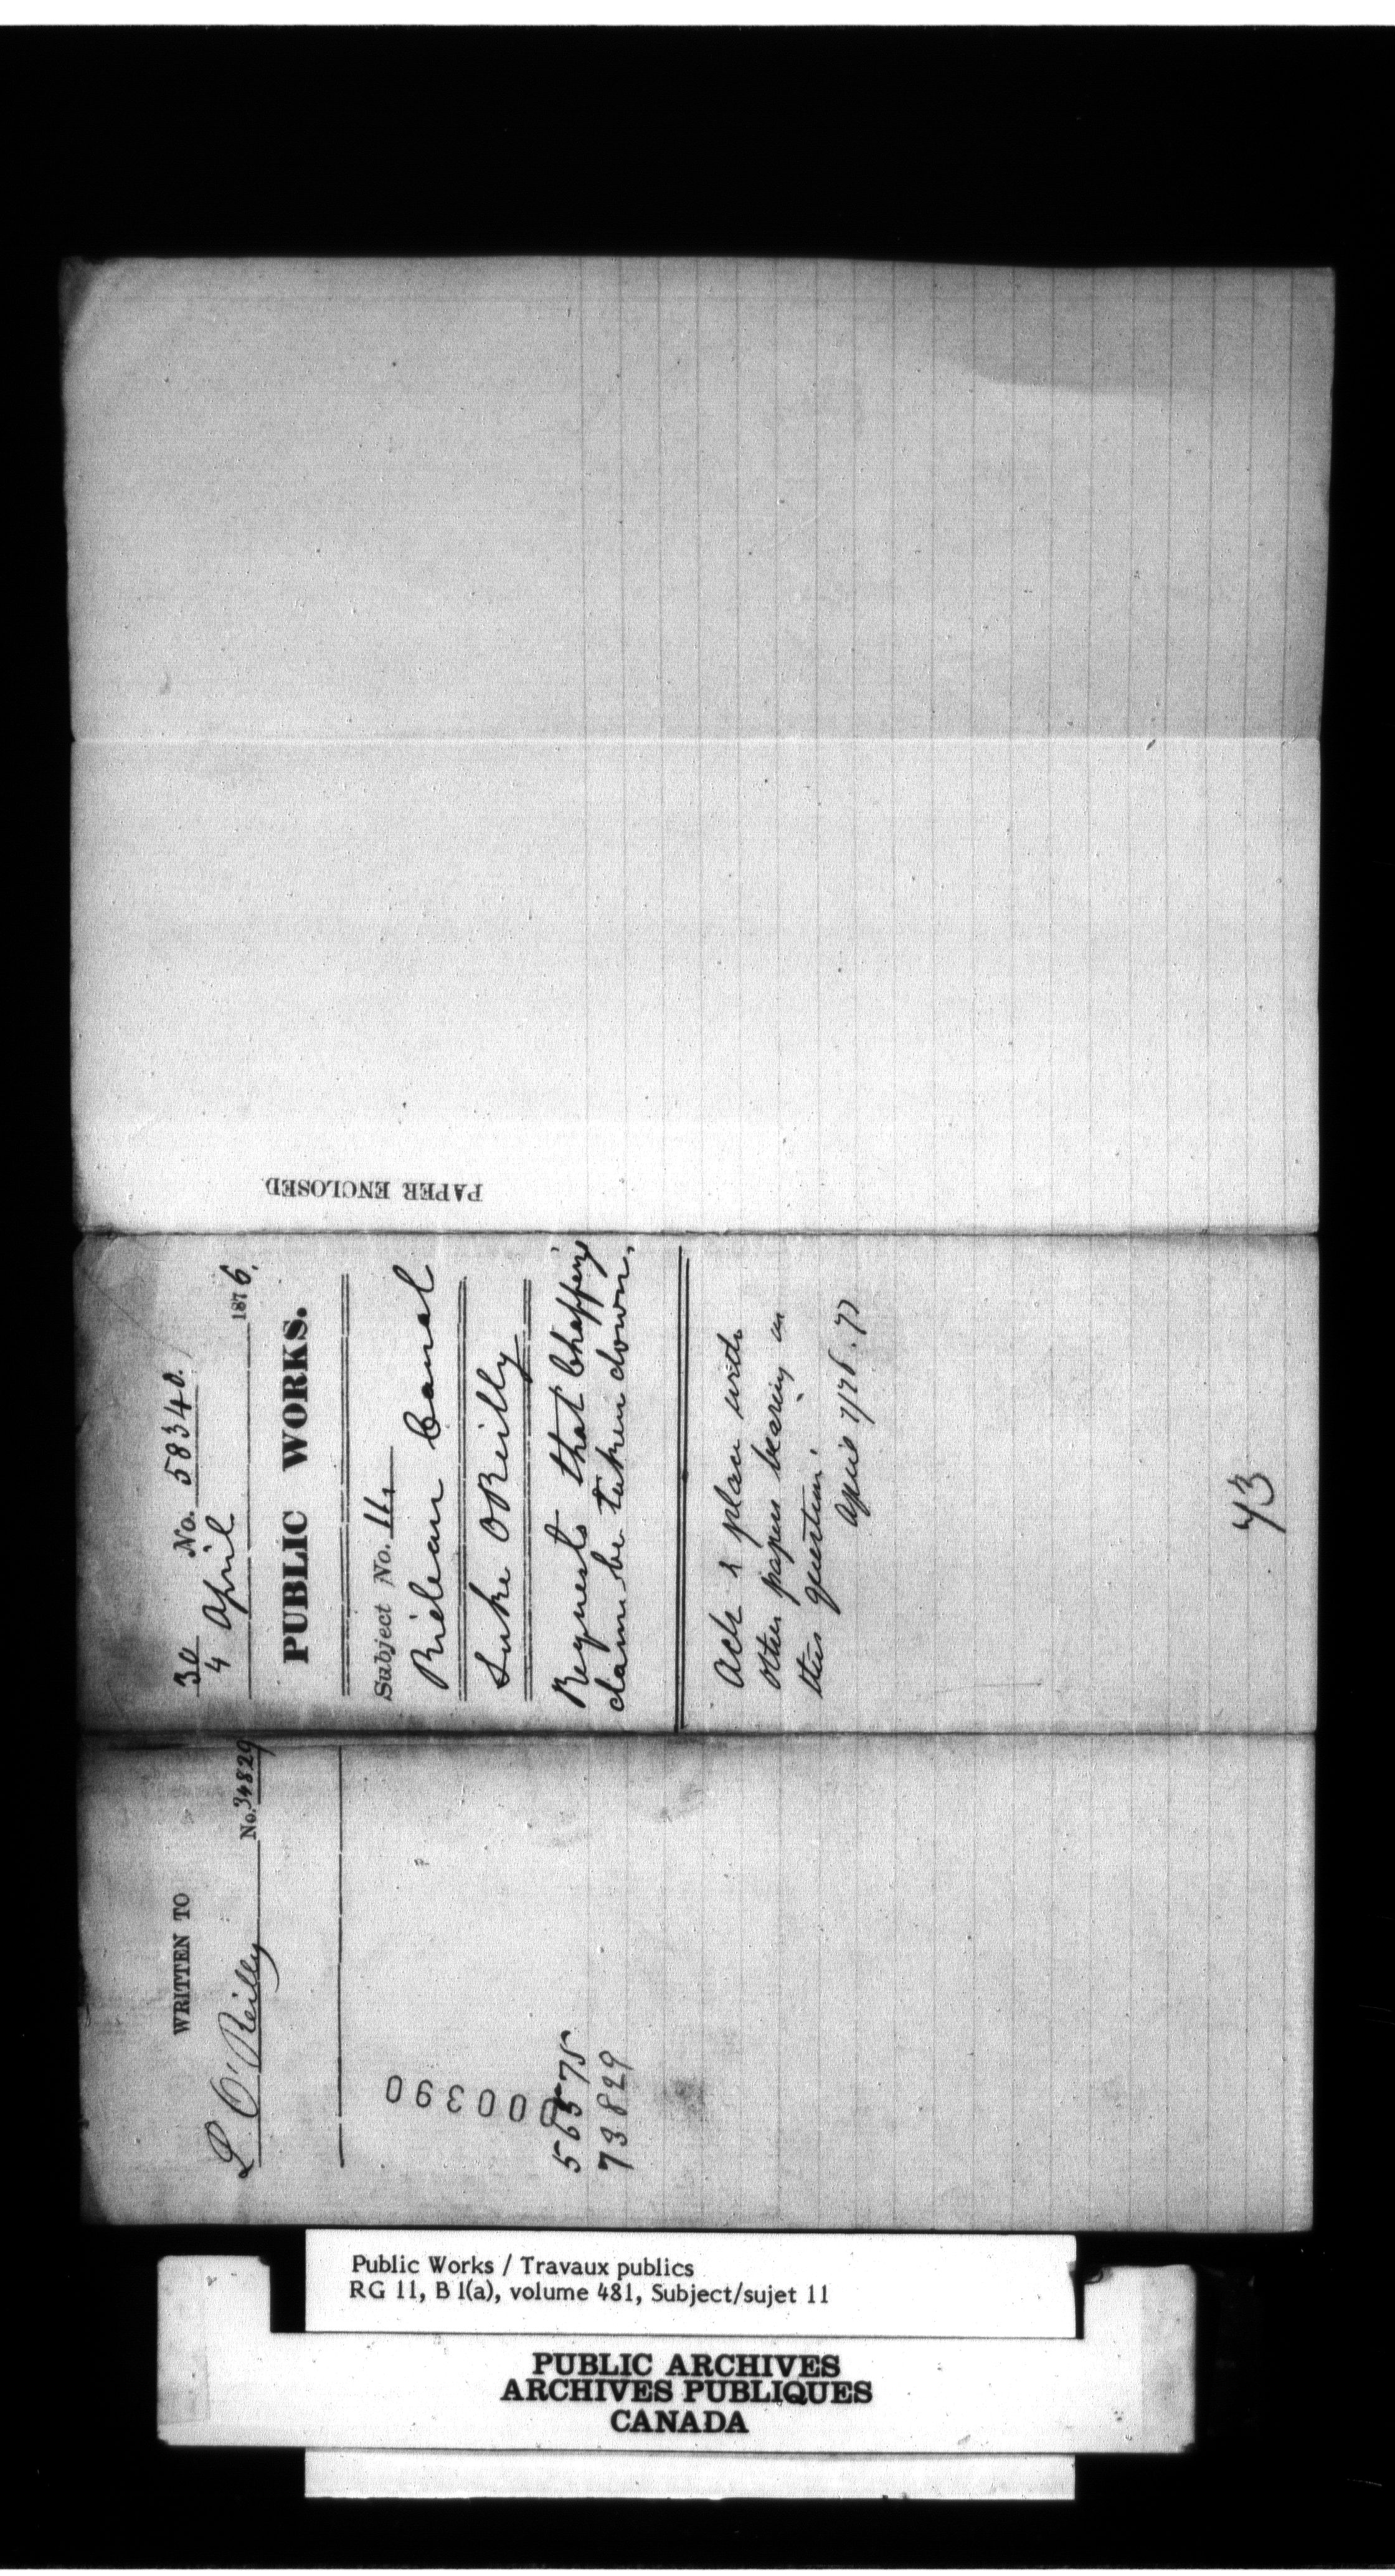 30 No. 58340.
4 April 1876.
PUBLIC WORKS.
Subject No. 11.
Rideau Canal
Luke O'Reilly
Requests that Chaffeys
dam be taken down.
Ack & place with
other papers bearing on
this question.
April 7/76.
43
PAPER ENCLOSED
WRITTEN TO
L. O'Reilly No. 34829
000390
56575
73829
Public Works / Travaux publics
RG 11, B 1(a), volume 481, Subject/sujet 11
PUBLIC ARCHIVES
ARCHIVES PUBLIQUES
CANADA